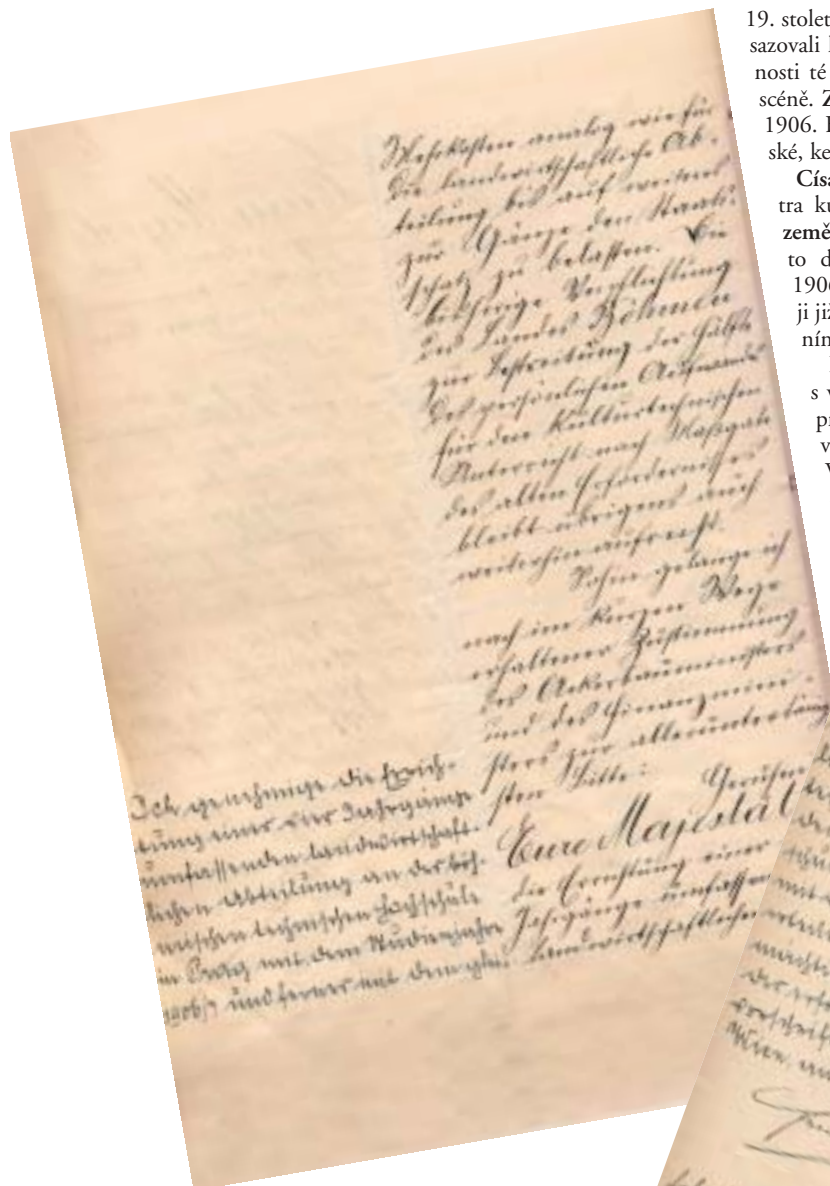 19. stolet
sazovali
nosti té
scéně. Z
1906.
ské, ke
Císa
tra ku
země
to d
1906
ji již
ním
s v
pr
v
V
Mehrkosten analog wie für
die landwirtschaftliche Ab-
teilung bis auf weiteres
zur Gänze den Staats-
schatz zu belasten. Die
bisherige Verpflichtung
des Landes Böhmen
zur Bestreitung der Hälfte
des persönlichen Aufwandes
für den kulturtechnischen
Unterricht nach Maßgabe
des alten Erfordernisses
bleibt übrigens auch
weiterhin aufrecht.
Sohin gelange ich
nach im kurzen Wege
erhaltener Zustimmung
des Ackerbauministers
und des Finanzmini-
sters zur alleruntertänig
sten Bitte: Geruhen
Eure Majestät
die Errichtung einer
Jahrgänge umfassen
landwirtschaftlichen
Ich genehmige die Errich-
tung einer vier Jahrgänge
umfassenden landwirtschaft-
lichen Abteilung an der böh-
mischen technischen Hochschule
in Prag mit dem Studienjahre
1906/7 und ferner mit dem glei-